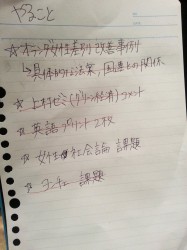 やること
☆ オランダ女性差別改善事例
↳具体的な法案, 国農との関係
☆ 上村ゼミ(グリーン経済)コメント
☆ 英語プリント2枚
☆ 女性と社会論 課題
☆ ヨンチェー 課題